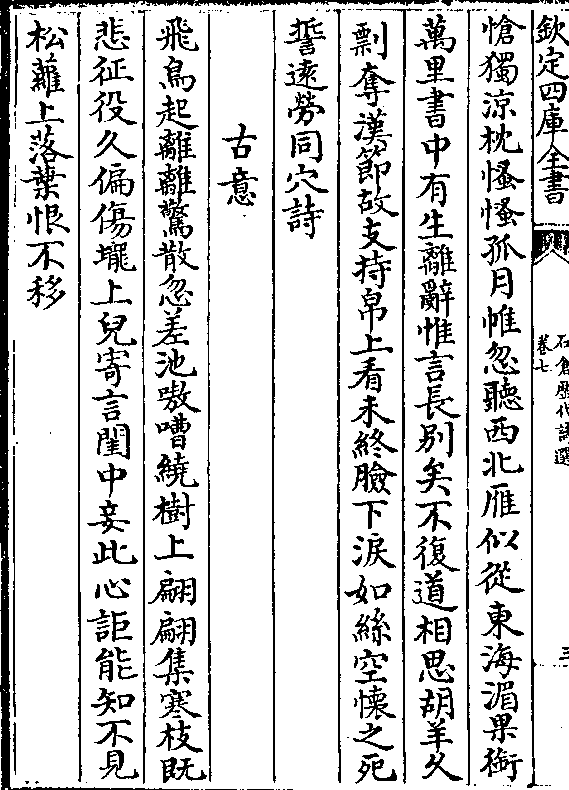 欽定四庫全書
石倉歷代詩選
卷七
三
愴獨涼枕慅慅孤月帷忽聽西北雁似從東海湄果銜
萬里書中有生離辭惟言長别矣不復道相思胡羊久
剽奪漢節故支持帛上看未終臉下淚如絲空懷之死
誓遠勞同穴詩
古意
飛鳥起離離驚散忽差池嗷嘈繞樹上翩翩集寒枝既
悲征役久偏傷壠上兒寄言閨中妾此心詎能知不見
松蘿上落葉恨不移